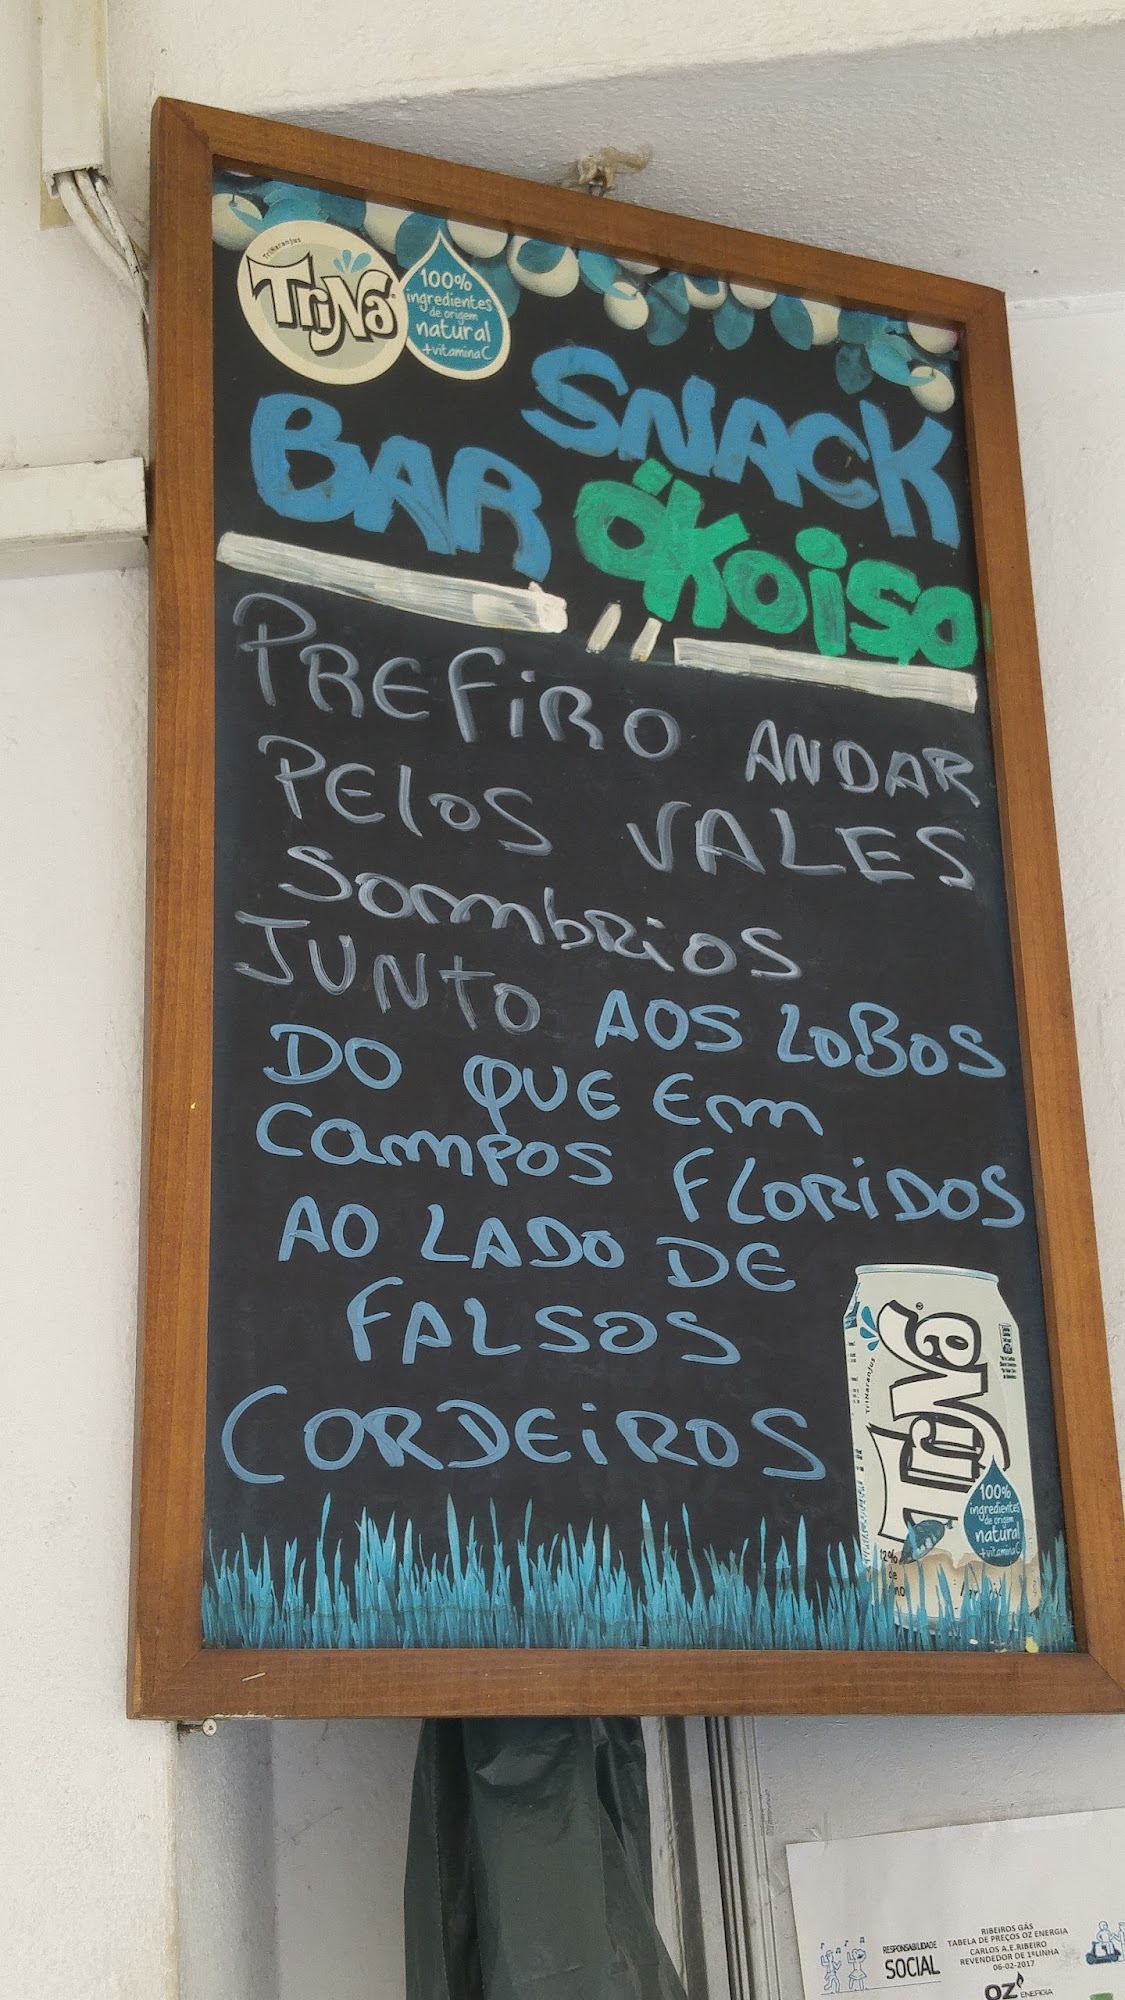 TriNaranjus
TriNa
100%
ingredientes
de origem
natural
+vitamina C
SNACK
BAR ÓKoiso
PREFiRO ANDAR
PElos VALES
SombRiOS
JUNtO AOS LOBOS
DO QUE Em
CampOS FLORiDOS
AO LADO DE
FALSOS
CORDEiROS
TriNaranjus
TriNa
100%
ingredientes
de origem
natural
+vitamina C
12%
de
RESPONSABILIDADE
SOCIAL
RIBEIROS GÁS
TABELA DE PREÇOS OZ ENERGIA
CARLOS A.E.RIBEIRO
REVENDEDOR DE 1ªLINHA
06-02-2017
OZ ENERGIA